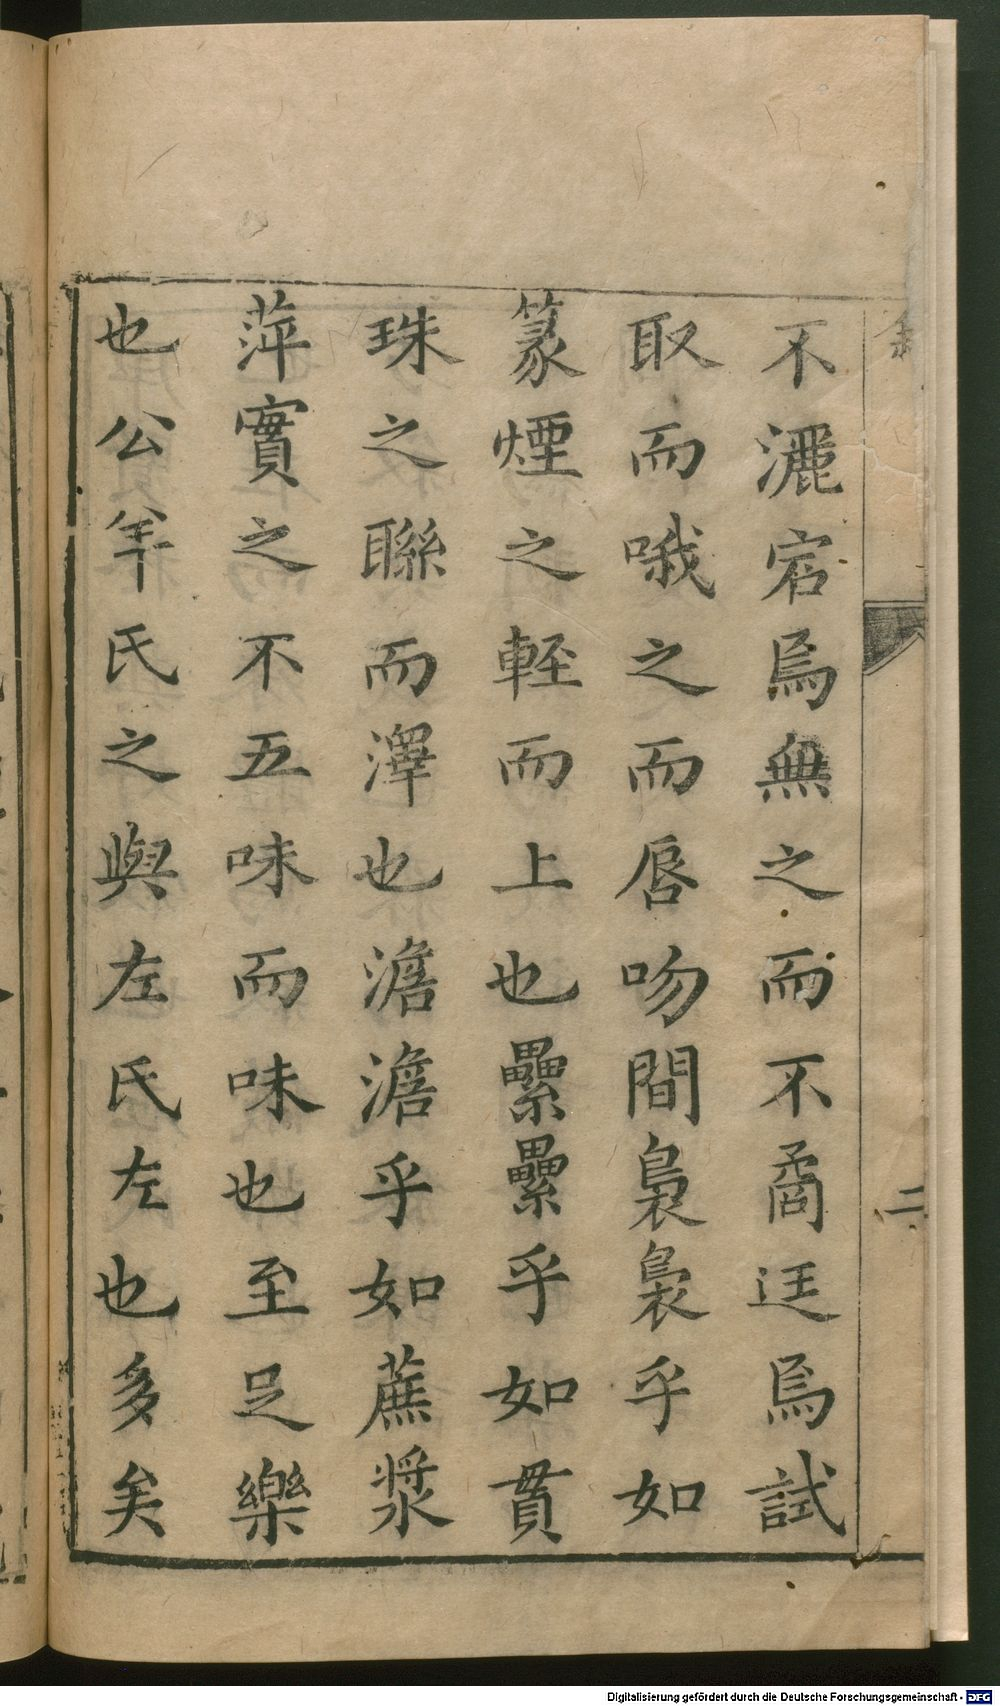 不灑宕焉無之而不矞迋焉試
取而哦之而唇吻間裊裊乎如
篆煙之輕而上也纍纍乎如貫
珠之聯而澤也澹澹乎如蔗漿
萍實之不五味而味也至足樂
也公羊氏之與左氏左也多矣
二
Digitalisierung gefördert durch die Deutsche Forschungsgemeinschaft - DFG